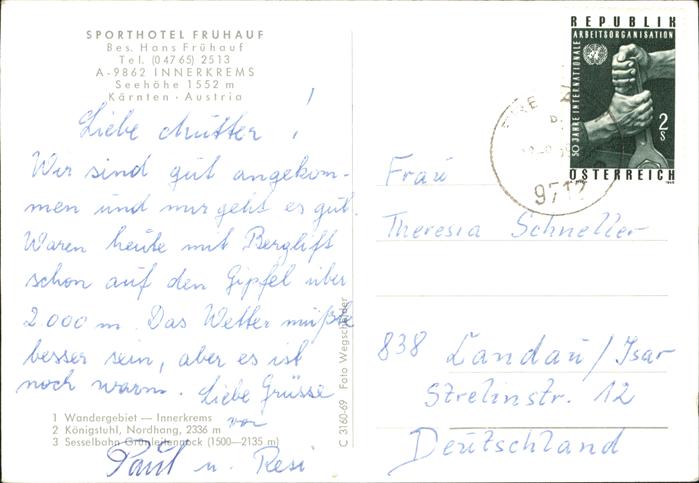 SPORTHOTEL FRÜHAUF
Bes. Hans Frühauf
Tel. (04765) 2513
A-9862 INNERKREMS
Seehöhe 1552 m
Kärnten · Austria
Liebe Mutter!
Wir sind gut angekom-
men und mir geht es gut.
Waren heute mit Berglift
schon auf den Gipfel über
2000 m. Das Wetter müßte
besser sein, aber es ist
noch warm. Liebe Grüsse
von
Paul u. Resi
1 Wandergebiet — Innerkrems
2 Königstuhl, Nordhang, 2336 m
3 Sesselbahn Grünleitennock (1500—2135 m)
C 3160-69 Foto Wegscheider
REPUBLIK
ARBEITSORGANISATION
50 JAHRE INTERNATIONALE
2
S
ÖSTERREICH
9717
Frau
Theresia Schneller
838 Landau/Isar
Strelinstr. 12
Deutschland